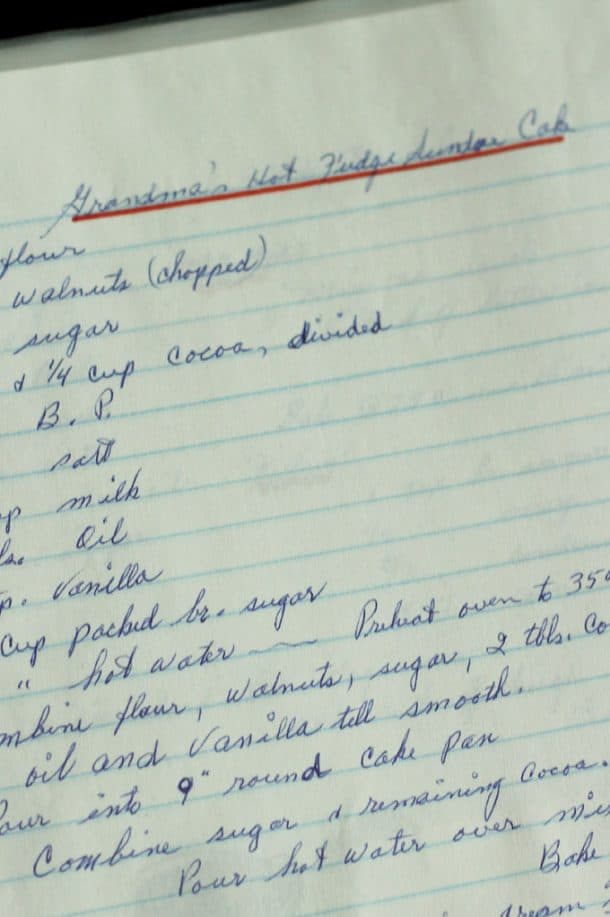 Grandma's Hot Fudge Sundae Cake
flour
walnuts (chopped)
sugar
& 1/4 cup cocoa, divided
B. P.
salt
p milk
bls. Oil
p. Vanilla
Cup packed br. sugar
" hot water — Preheat oven to 350
mbine flour, walnuts, sugar, 2 tbls. Co
oil and Vanilla till smooth.
Pour into 9" round cake pan
Combine sugar & remaining Cocoa.
Pour hot water over mix
Bake